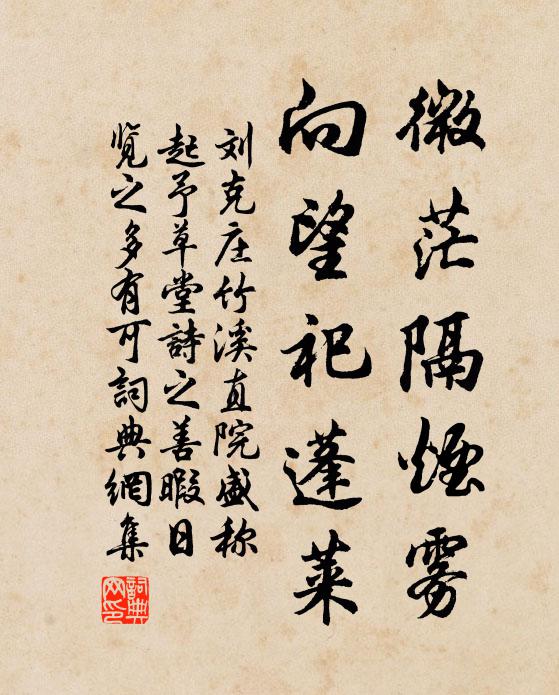 微茫隔煙雾
向望祀蓬莱
刘克庄竹溪直院盛称
起予草堂詩之善暇日
览之多有可詞典網集